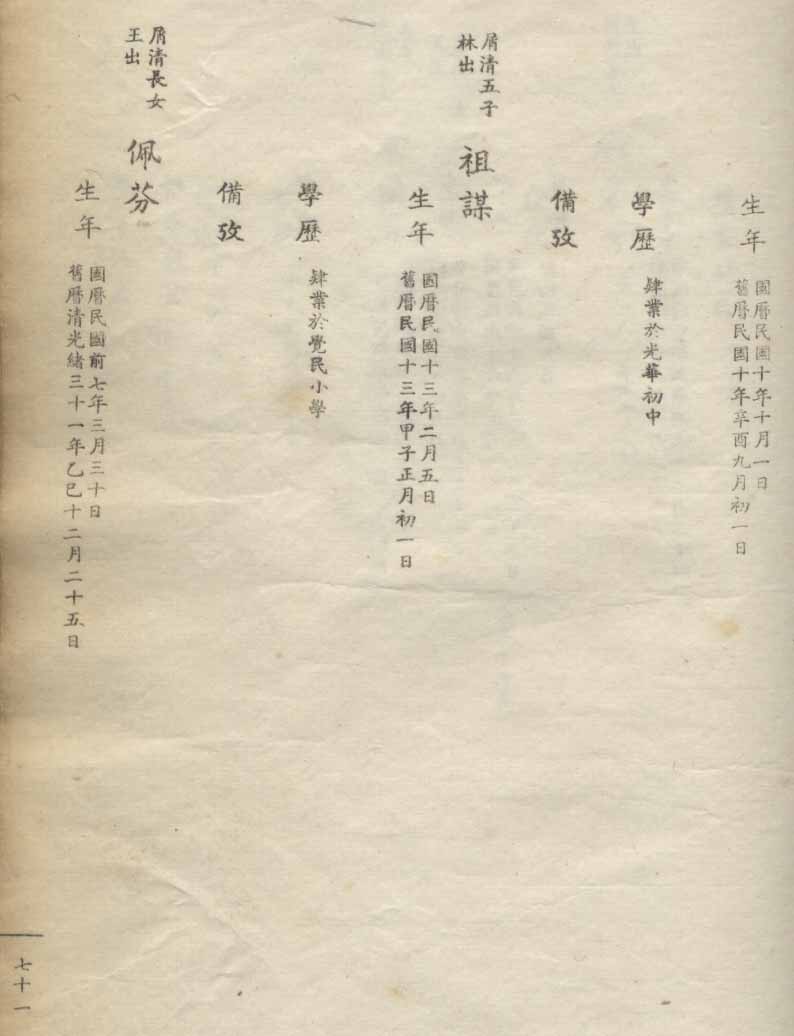 生年
國曆民國十年十月一日
舊曆民國十年辛酉九月初一日
學歷
肄業於光華初中
備攷
屑清五子
林出
祖謀
生年
國曆民國十三年二月五日
舊曆民國十三年甲子正月初一日
學歷
肄業於覺民小學
備攷
屑清長女
王出
佩芬
生年
國曆民國前七年三月三十日
舊曆清光緒三十一年乙巳十二月二十五日
七十一